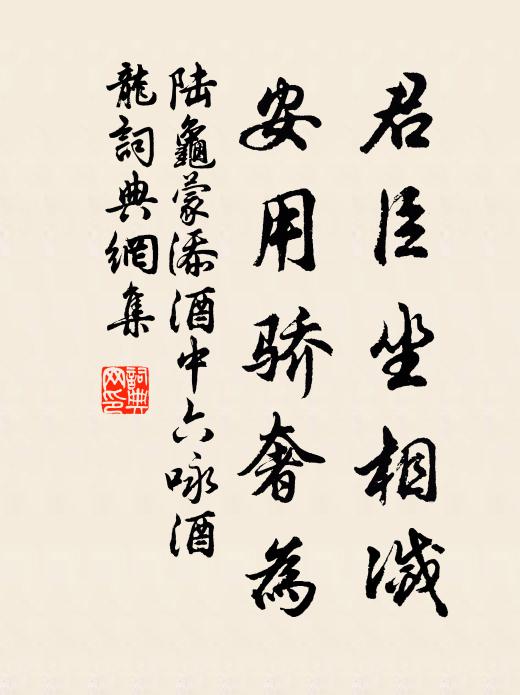 君臣坐相滅
安用骄奢為
陆龜蒙添酒中六咏酒
龍詞典網集
詞典
网印